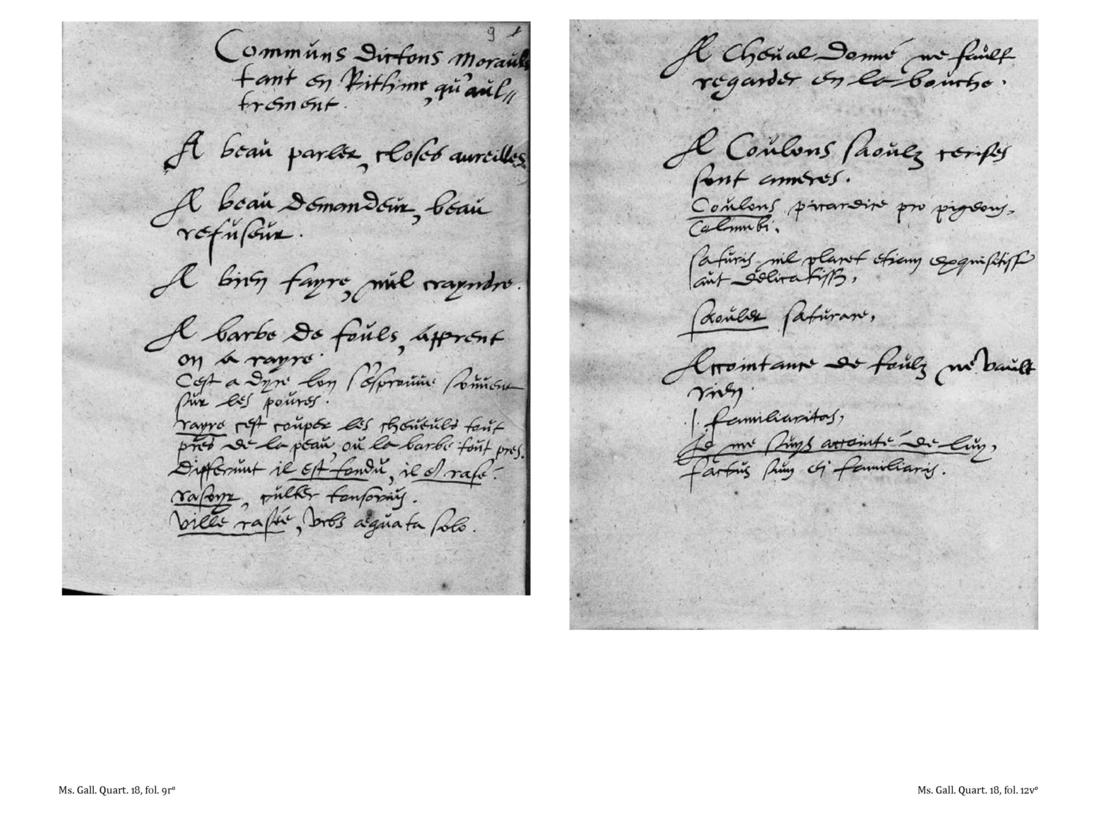 9
Communs dictons moraulx
tant en Rithme, qu'aul//
trement.
A beau parler, closes aureilles.
A beau demandeur, beau
refuseur.
A bien fayre, nul crayndre.
A barbe de fouls, apprent
on a rayre.
C'est a dyre lon s'esprouue souuent
sur les poures.
rayre c'est couper les cheueuls tout
pres de la peau, ou la barbe tout pres.
Differunt il est tondu, il est rasé.
rasoyr, culter tonsorius.
ville rasée, vrbs aequata solo.
A Cheual donné ne fault
regarder en la bouche.
A Coulons saoulz cerises
sont ameres.
Coulons picardice pro pigeons,
Columbi.
saturis nil placet etiam exquisitiss
aut delicatiss,
saouler saturare,
Accointance de foulz ne vault
rien.
familiaritas,
Je me suys accointé de luy,
factus sum ei familiaris.
Ms. Gall. Quart. 18, fol. 9rº
Ms. Gall. Quart. 18, fol. 12vº